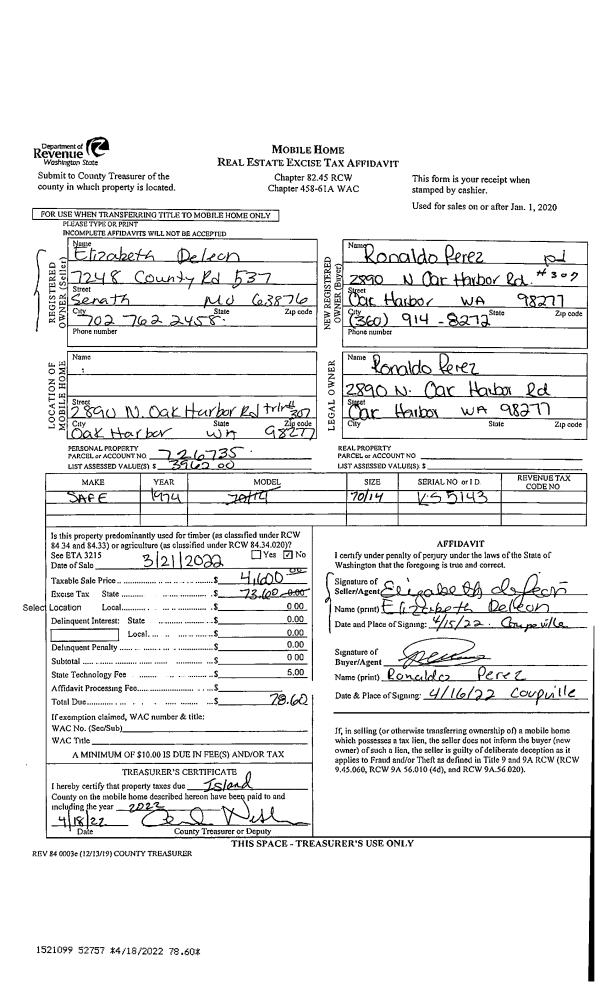 Department of
Revenue
Washington State
MOBILE HOME
REAL ESTATE EXCISE TAX AFFIDAVIT
Submit to County Treasurer of the
county in which property is located.
Chapter 82.45 RCW
Chapter 458-61A WAC
This form is your receipt when
stamped by cashier.
Used for sales on or after Jan. 1, 2020
FOR USE WHEN TRANSFERRING TITLE TO MOBILE HOME ONLY
PLEASE TYPE OR PRINT
INCOMPLETE AFFIDAVITS WILL NOT BE ACCEPTED
REGISTERED
OWNER (Seller)
Name
Elizabeth Deleon
7248 County Rd 537
Street
Senath MO 63876
City State Zip code
702 762 2458
Phone number
NEW REGISTERED
OWNER (Buyer)
Name
Ronaldo Perez
2890 N Oak Harbor Rd. #307
Street
Oak Harbor WA 98277
City State Zip code
(360) 914-8272
Phone number
LOCATION OF
MOBILE HOME
Name
Street
2890 N. Oak Harbor Rd trlr# 307
City State Zip code
Oak Harbor WA 98277
LEGAL OWNER
Name
Ronaldo Perez
2890 N. Oak Harbor Rd
Street
Oak Harbor WA 98277
City State Zip code
PERSONAL PROPERTY
PARCEL or ACCOUNT NO. 726735
LIST ASSESSED VALUE(S) $ 3962.00
REAL PROPERTY
PARCEL or ACCOUNT NO
LIST ASSESSED VALUE(S) $
MAKE YEAR MODEL SIZE SERIAL NO or I D. REVENUE TAX
CODE NO
SAFE 1974 70/14 70/14 KS5143
Is this property predominantly used for timber (as classified under RCW
84.34 and 84.33) or agriculture (as classified under RCW 84.34.020)?
See ETA 3215 Yes No
Date of Sale 3/21/2022
Taxable Sale Price $ 4,600.00
Excise Tax State $ 73.60 0.00
Select Location Local $ 0.00
Delinquent Interest: State $ 0.00
Local $ 0.00
Delinquent Penalty $ 0.00
Subtotal $ 0 00
State Technology Fee $ 5.00
Affidavit Processing Fee $
Total Due $ 78.60
If exemption claimed, WAC number & title:
WAC No. (Sec/Sub)
WAC Title
A MINIMUM OF $10.00 IS DUE IN FEE(S) AND/OR TAX
TREASURER'S CERTIFICATE
I hereby certify that property taxes due Island
County on the mobile home described hereon have been paid to and
including the year 2022
4/18/22
Date County Treasurer or Deputy
AFFIDAVIT
I certify under penalty of perjury under the laws of the State of
Washington that the foregoing is true and correct.
Signature of
Seller/Agent Elizabeth deleon
Name (print) Elizabeth Deleon
Date and Place of Signing: 4/15/22 Coupeville
Signature of
Buyer/Agent
Name (print) Ronaldo Perez
Date & Place of Signing: 4/16/22 Coupville
If, in selling (or otherwise transferring ownership of) a mobile home
which possesses a tax lien, the seller does not inform the buyer (new
owner) of such a lien, the seller is guilty of deliberate deception as it
applies to Fraud and/or Theft as defined in Title 9 and 9A RCW (RCW
9.45.060, RCW 9A 56.010 (4d), and RCW 9A.56 020).
THIS SPACE - TREASURER'S USE ONLY
REV 84 0003e (12/13/19) COUNTY TREASURER
1521099 52757 *4/18/2022 78.60*